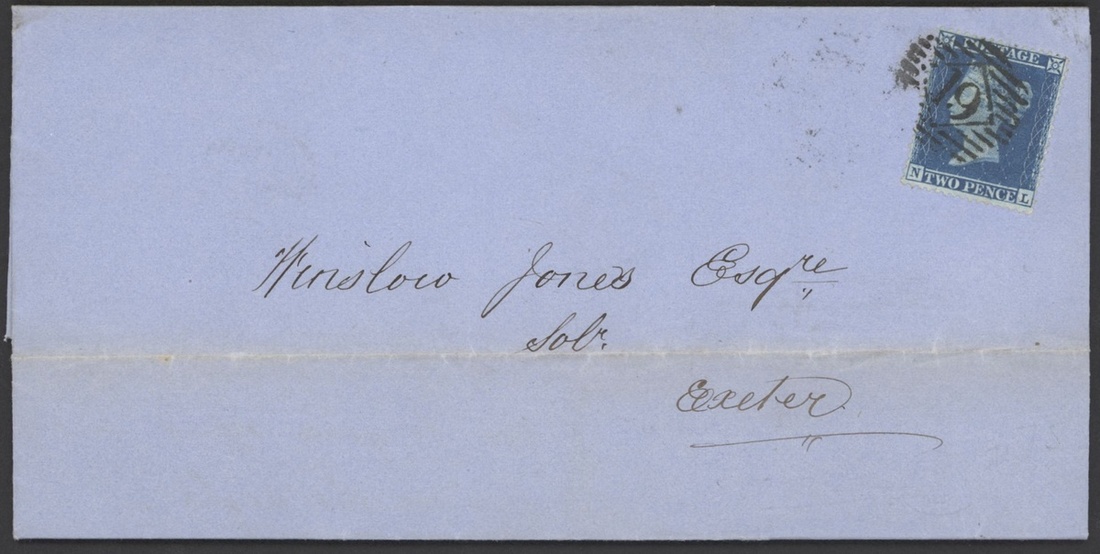 POSTAGE
19
N TWO PENCE L
Winslow Jones Esqre
Solr.
Exeter